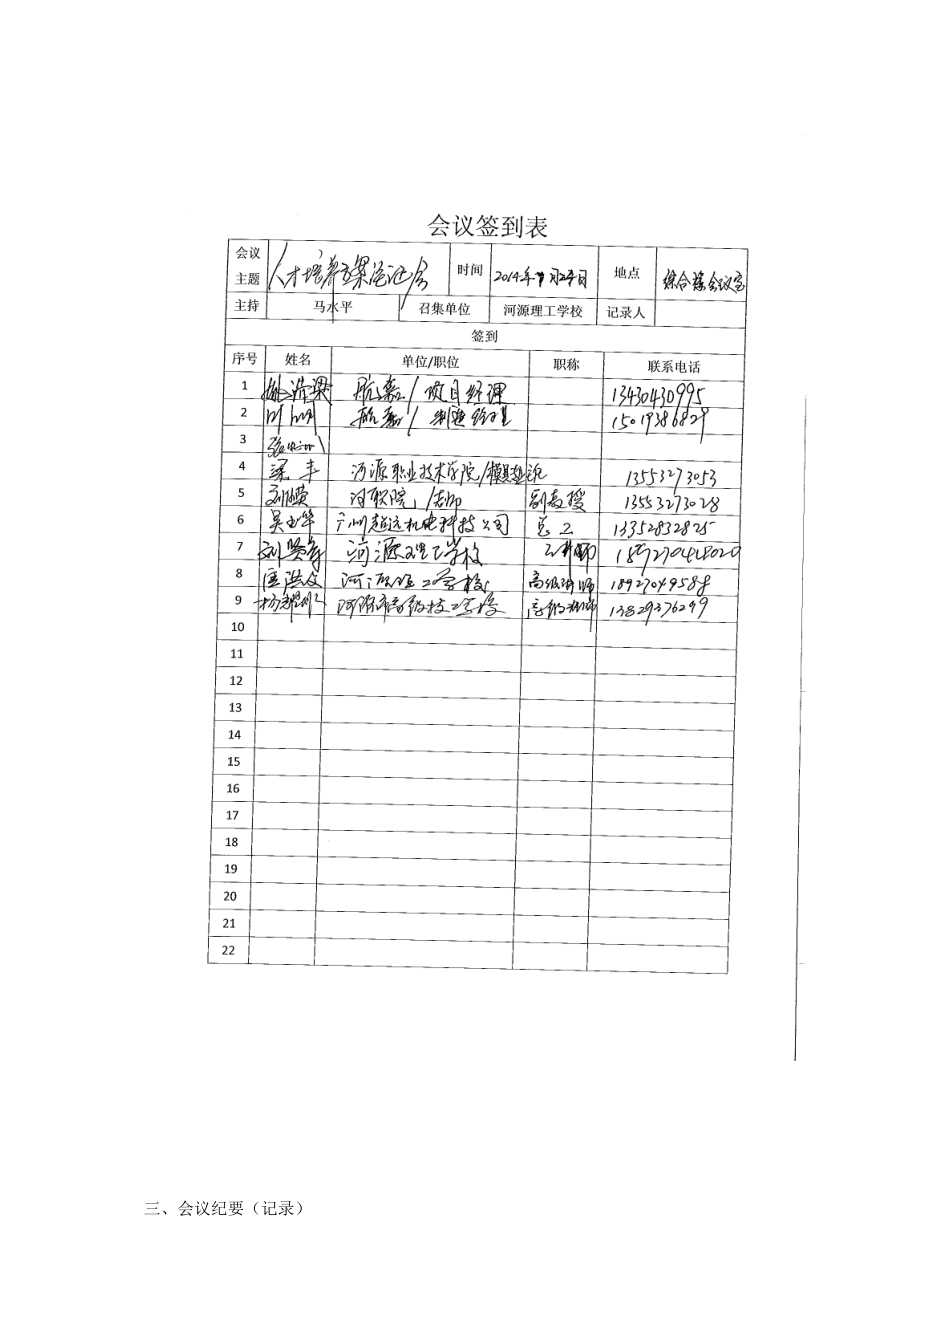 会议签到表
会议主题 人才培养方案论证会 时间 2014年 月29日 地点 综合楼会议室
主持 马水平 召集单位 河源理工学校 记录人
签到
序号 姓名 单位/职位 职称 联系电话
1 航嘉/项目经理 13430430995
2 航嘉/制造经理 15019386829
3
4 梁丰 河源职业技术学院/模具 13553273053
5 河职院/老师 副教授 13553273028
6 吴 华 广州超远机电科技公司 总工 13352832825
7 刘贤 河源理工学校
8 河源理工学校 高级讲师 18927049588
9 杨 河源市高级技工学校 高级讲师 13829376299
10
11
12
13
14
15
16
17
18
19
20
21
22
三、会议纪要（记录）